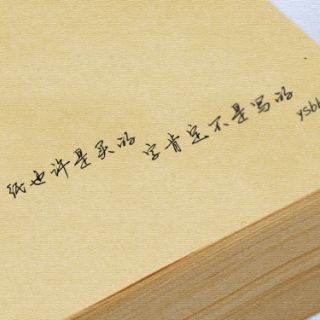 纸也许是买的 字肯定不是写的 ysbb